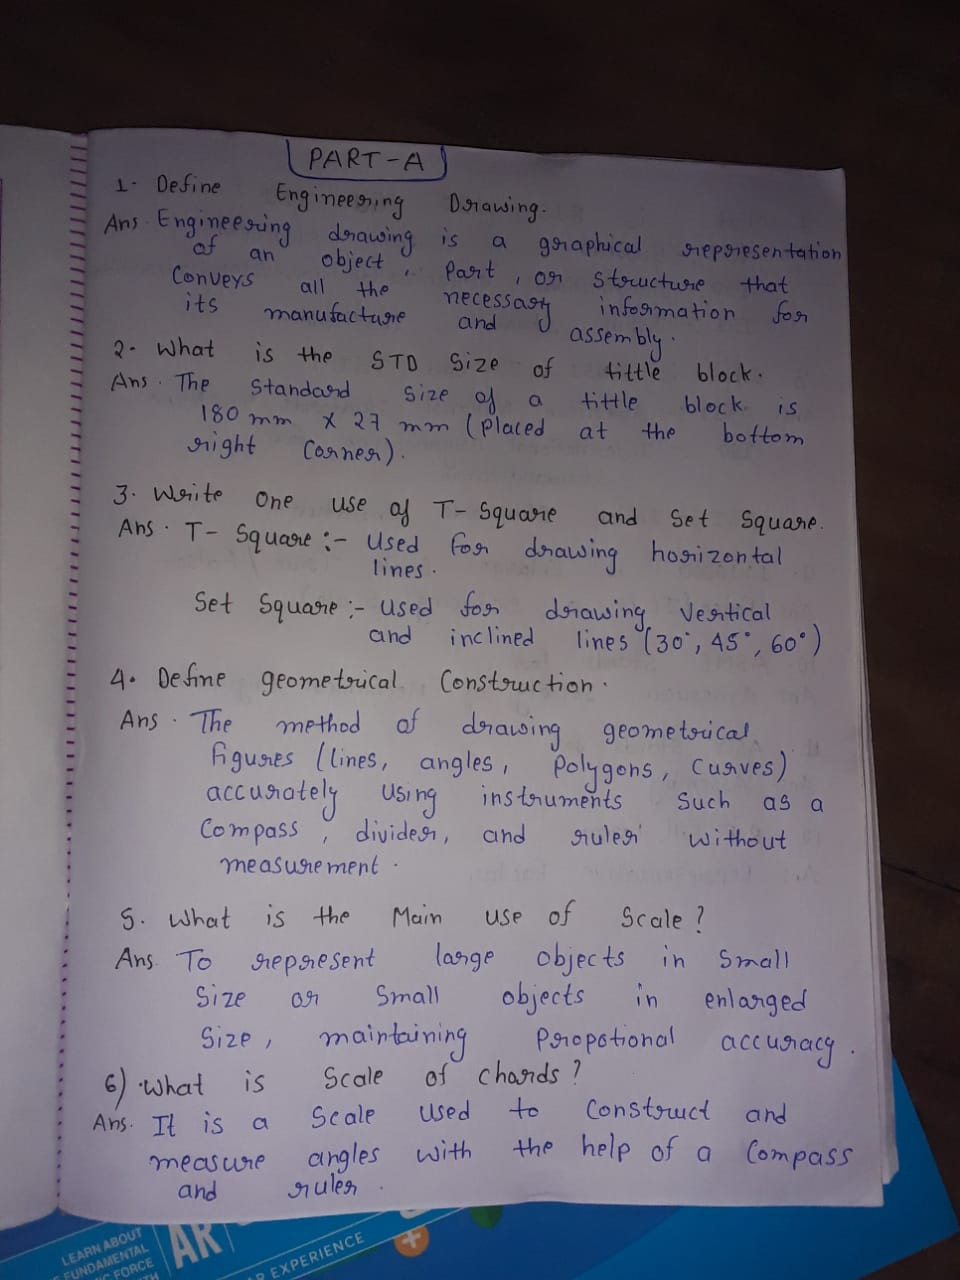 PART-A
1- Define Engineering Drawing.
Ans. Engineering drawing is a graphical representation
of an object, Part, or structure that
Conveys all the necessary information for
its manufacture and assembly.
2- What is the STD Size of tittle block.
Ans. The Standard Size of a tittle block is
180 mm x 27 mm (Placed at the bottom
right Corner).
3. Write One use of T-Square and Set Square.
Ans. T- Square :- Used for drawing horizontal
lines.
Set Square :- used for drawing Vertical
and inclined lines (30°, 45°, 60°)
4. Define geometrical Construction.
Ans. The method of drawing geometrical
figures (lines, angles, Polygons, Curves)
accurately using instruments Such as a
Compass, divider, and ruler without
measurement.
5. What is the Main use of Scale?
Ans. To represent large objects in Small
Size or Small objects in enlarged
Size, maintaining Propotional accuracy.
6) What is Scale of chords?
Ans. It is a Scale used to Construct and
measure angles with the help of a Compass
and ruler.
LEARN ABOUT
FUNDAMENTAL
FORCE
AR
EXPERIENCE